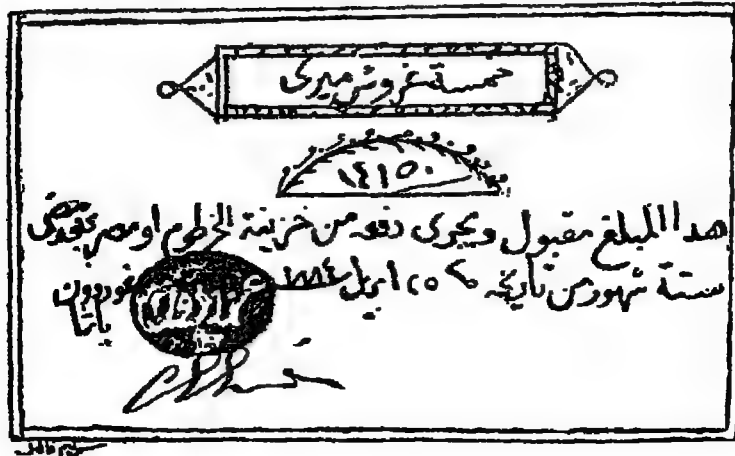 خمسة غروش ميري
١٤١٥٠
هذا المبلغ مقبول ويجري دفعه من خزينة الخرطوم او مصر بعد مضي
ستة شهور من تاريخه ٢٥ ابريل ١٨٨٤ غوردون
باشا